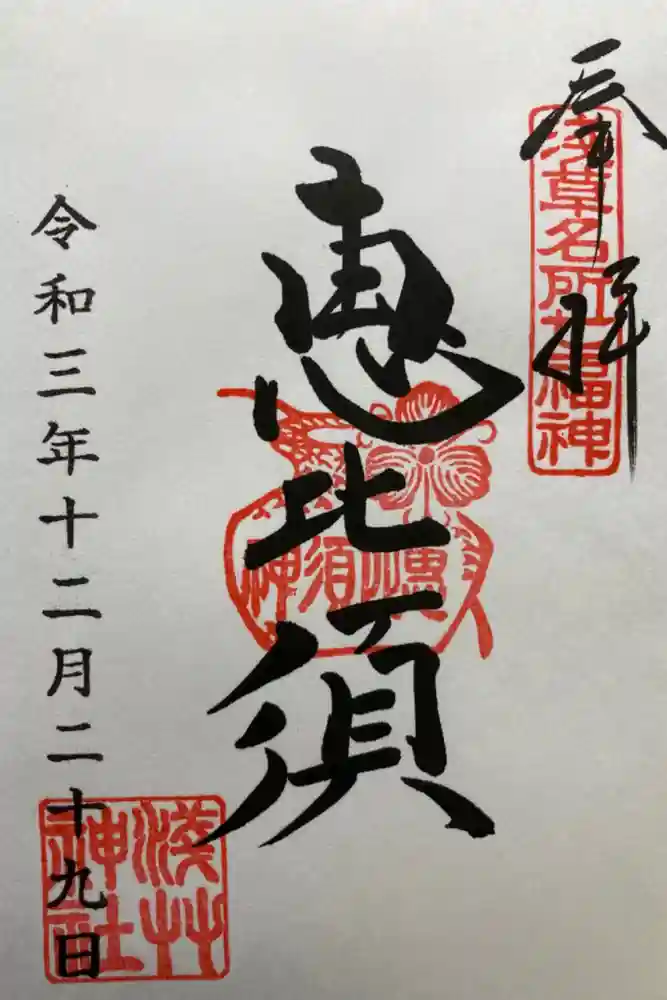 奉拝
浅草名所七福神
恵比須
恵比須神
令和三年十二月二十九日
浅草神社